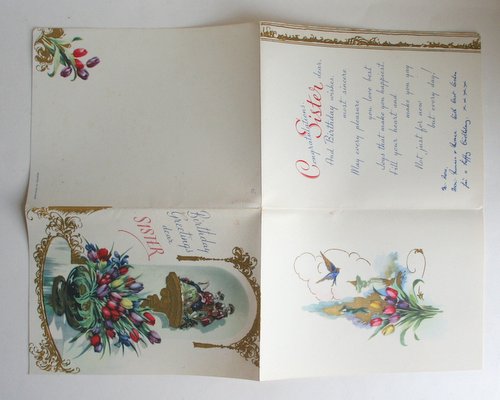 Birthday
Greetings
dear
SISTER
Congratulations,
Sister dear,
And Birthday wishes,
most sincere
May every pleasure
you love best
Joys that make you happiest,
Fill your heart and
make you gay
Not just for now,
but every day!
for a happy birthday x x x x